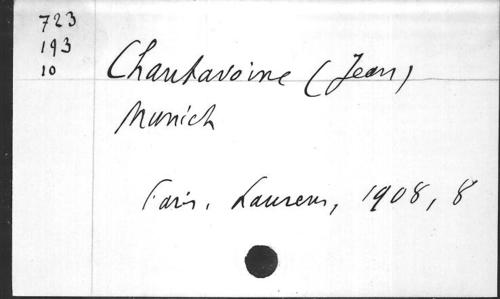 723
193
10
Chantavoine (Jean)
Munich
Paris, Laurens, 1908, 8